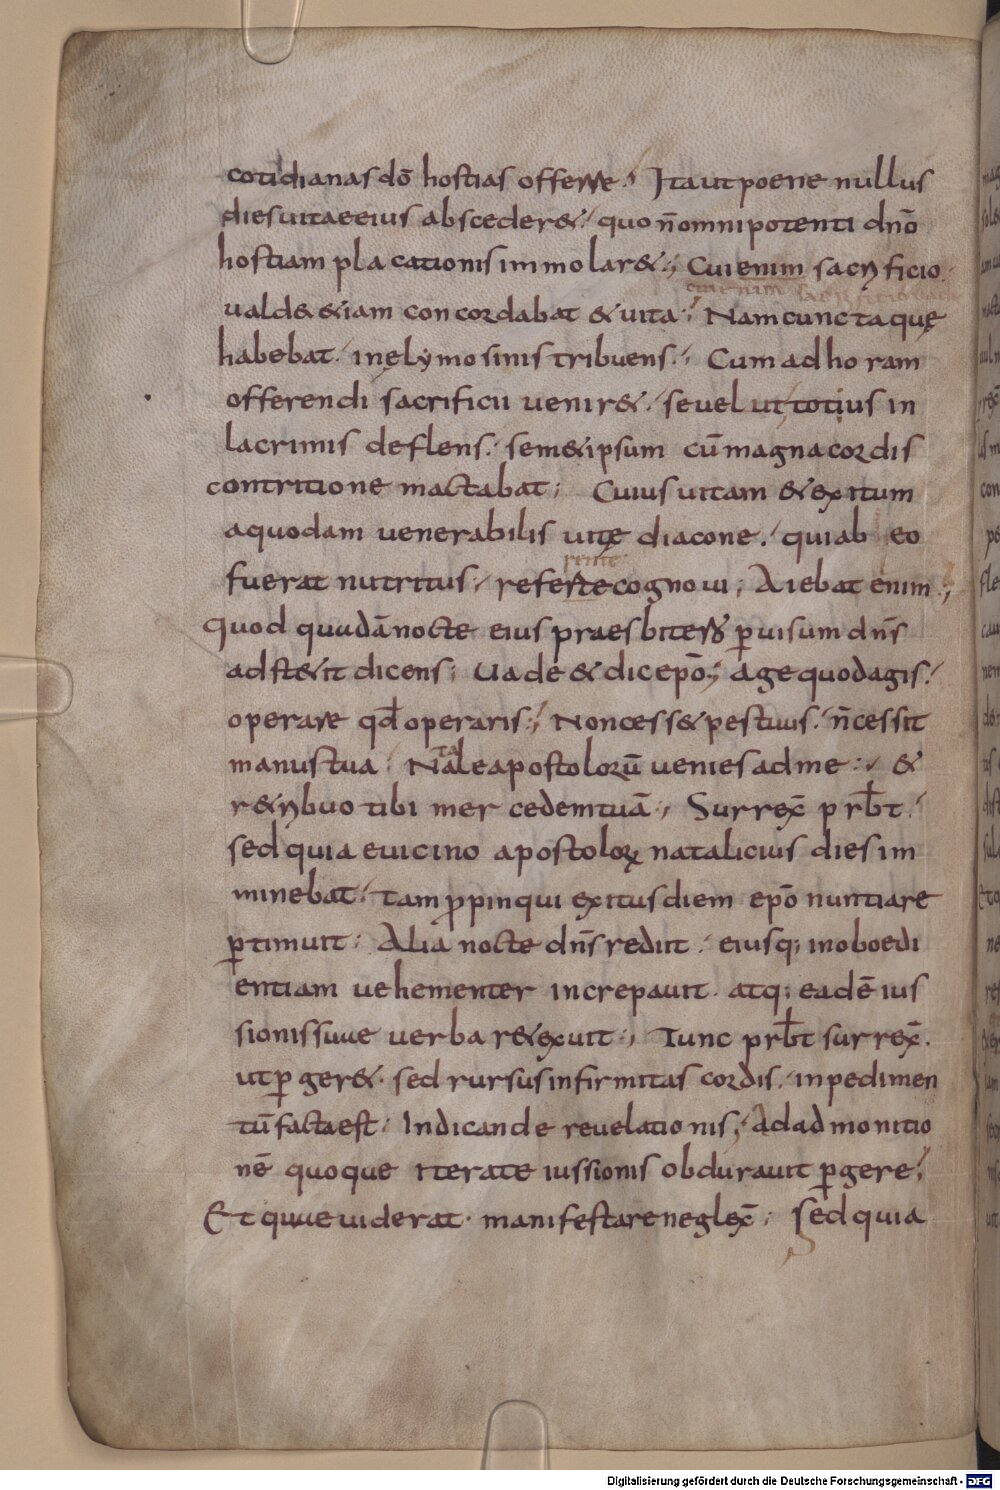 cotidianas dō hostias offerre. Ita ut poene nullus
dies uitae eius abscederet, quo n̄ omnipotenti dnō
hostiam placationis immolar&; Cui enim sacrificio
cui enim sacrificio
uald& &iam concordabat & uita; Nam cuncta quę
habebat. in ęlymosinis tribuens; Cum ad horam
offerendi sacrificii uenir&. se uel ut totius in
lacrimis deflens. sem&ipsum cū magna cordis
contritione mactabat; Cuius uitam & exitum
a quodam uenerabilis uitę diacone. qui ab eo
rente
fuerat nutritus. referte cognoui; Aiebat enim;
quod quadā nocte eius praesbitero p̱ uisum dn̄s
adst&it dicens; Uade & dic epō; age quod agis.
operare qd̄ operaris; Non cess& pes tuus. n̄ cessit
manus tua. Na
ta
le apostolorū uenies ad me; &
r&ribuo tibi mercedem tuā; Surrex̄ prb̄t.
sed quia e uicino apostolorꝝ natalicius dies im
minebat. tam ꝓpinqui exitus diem epō nuntiare
ꝑtimuit; Alia nocte dn̄s rediit. eiusq; inoboedi
entiam uehementer increpauit. atq; eadē ius
sionis suae uerba r&exuit; Tunc prb̄t surrex̄.
ut ꝑger&. sed rursus infirmitas cordis. inpedimen
tū facta est. Indicande reuelationis; Ad admonitio
nē quoque iterate iussionis obdurauit ꝑgere;
Et quae uiderat. manifestare neglex̄; Sed quia
Digitalisierung gefördert durch die Deutsche Forschungsgemeinschaft - DFG